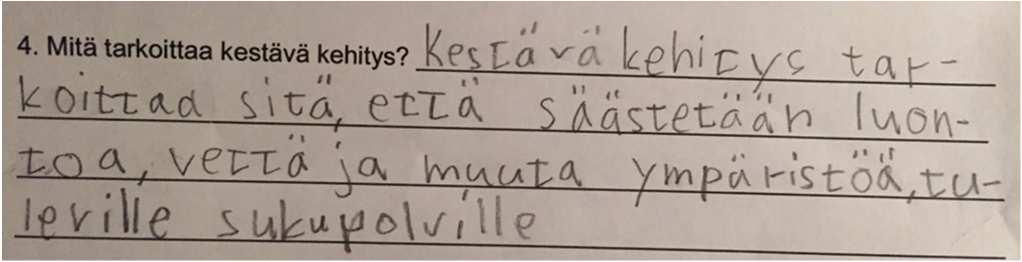 4. Mitä tarkoittaa kestävä kehitys? Kestävä kehitys tar-
koittaa sitä, että säästetään luon-
toa, vettä ja muuta ympäristöä, tu-
leville sukupolville